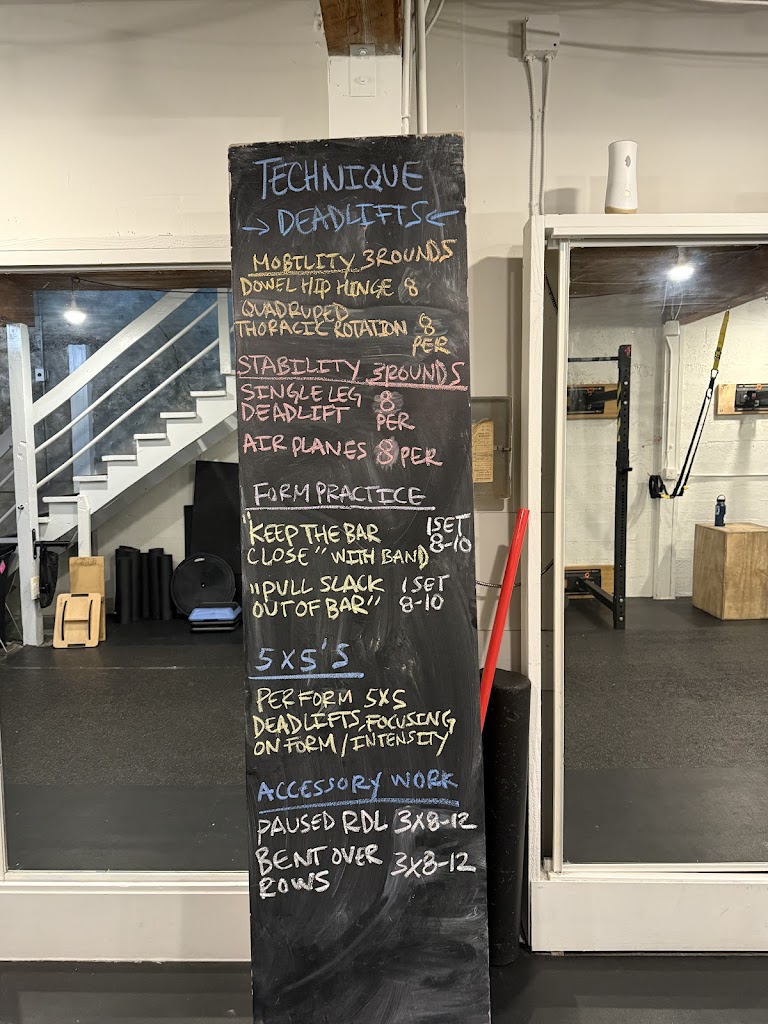 TECHNIQUE
→ DEADLIFTS ←
MOBILITY 3ROUNDS
DOWEL HIP HINGE 8
QUADRUPED
THORACIC ROTATION 8
PER
STABILITY 3ROUNDS
SINGLE LEG 8
DEADLIFT PER
AIR PLANES 8 PER
FORM PRACTICE
"KEEP THE BAR 1SET
CLOSE" WITH BAND 8-10
"PULL SLACK 1 SET
OUT OF BAR" 8-10
5X5'S
PERFORM 5X5
DEADLIFTS, FOCUSING
ON FORM/INTENSITY
ACCESSORY WORK
PAUSED RDL 3X8-12
BENT OVER 3X8-12
ROWS